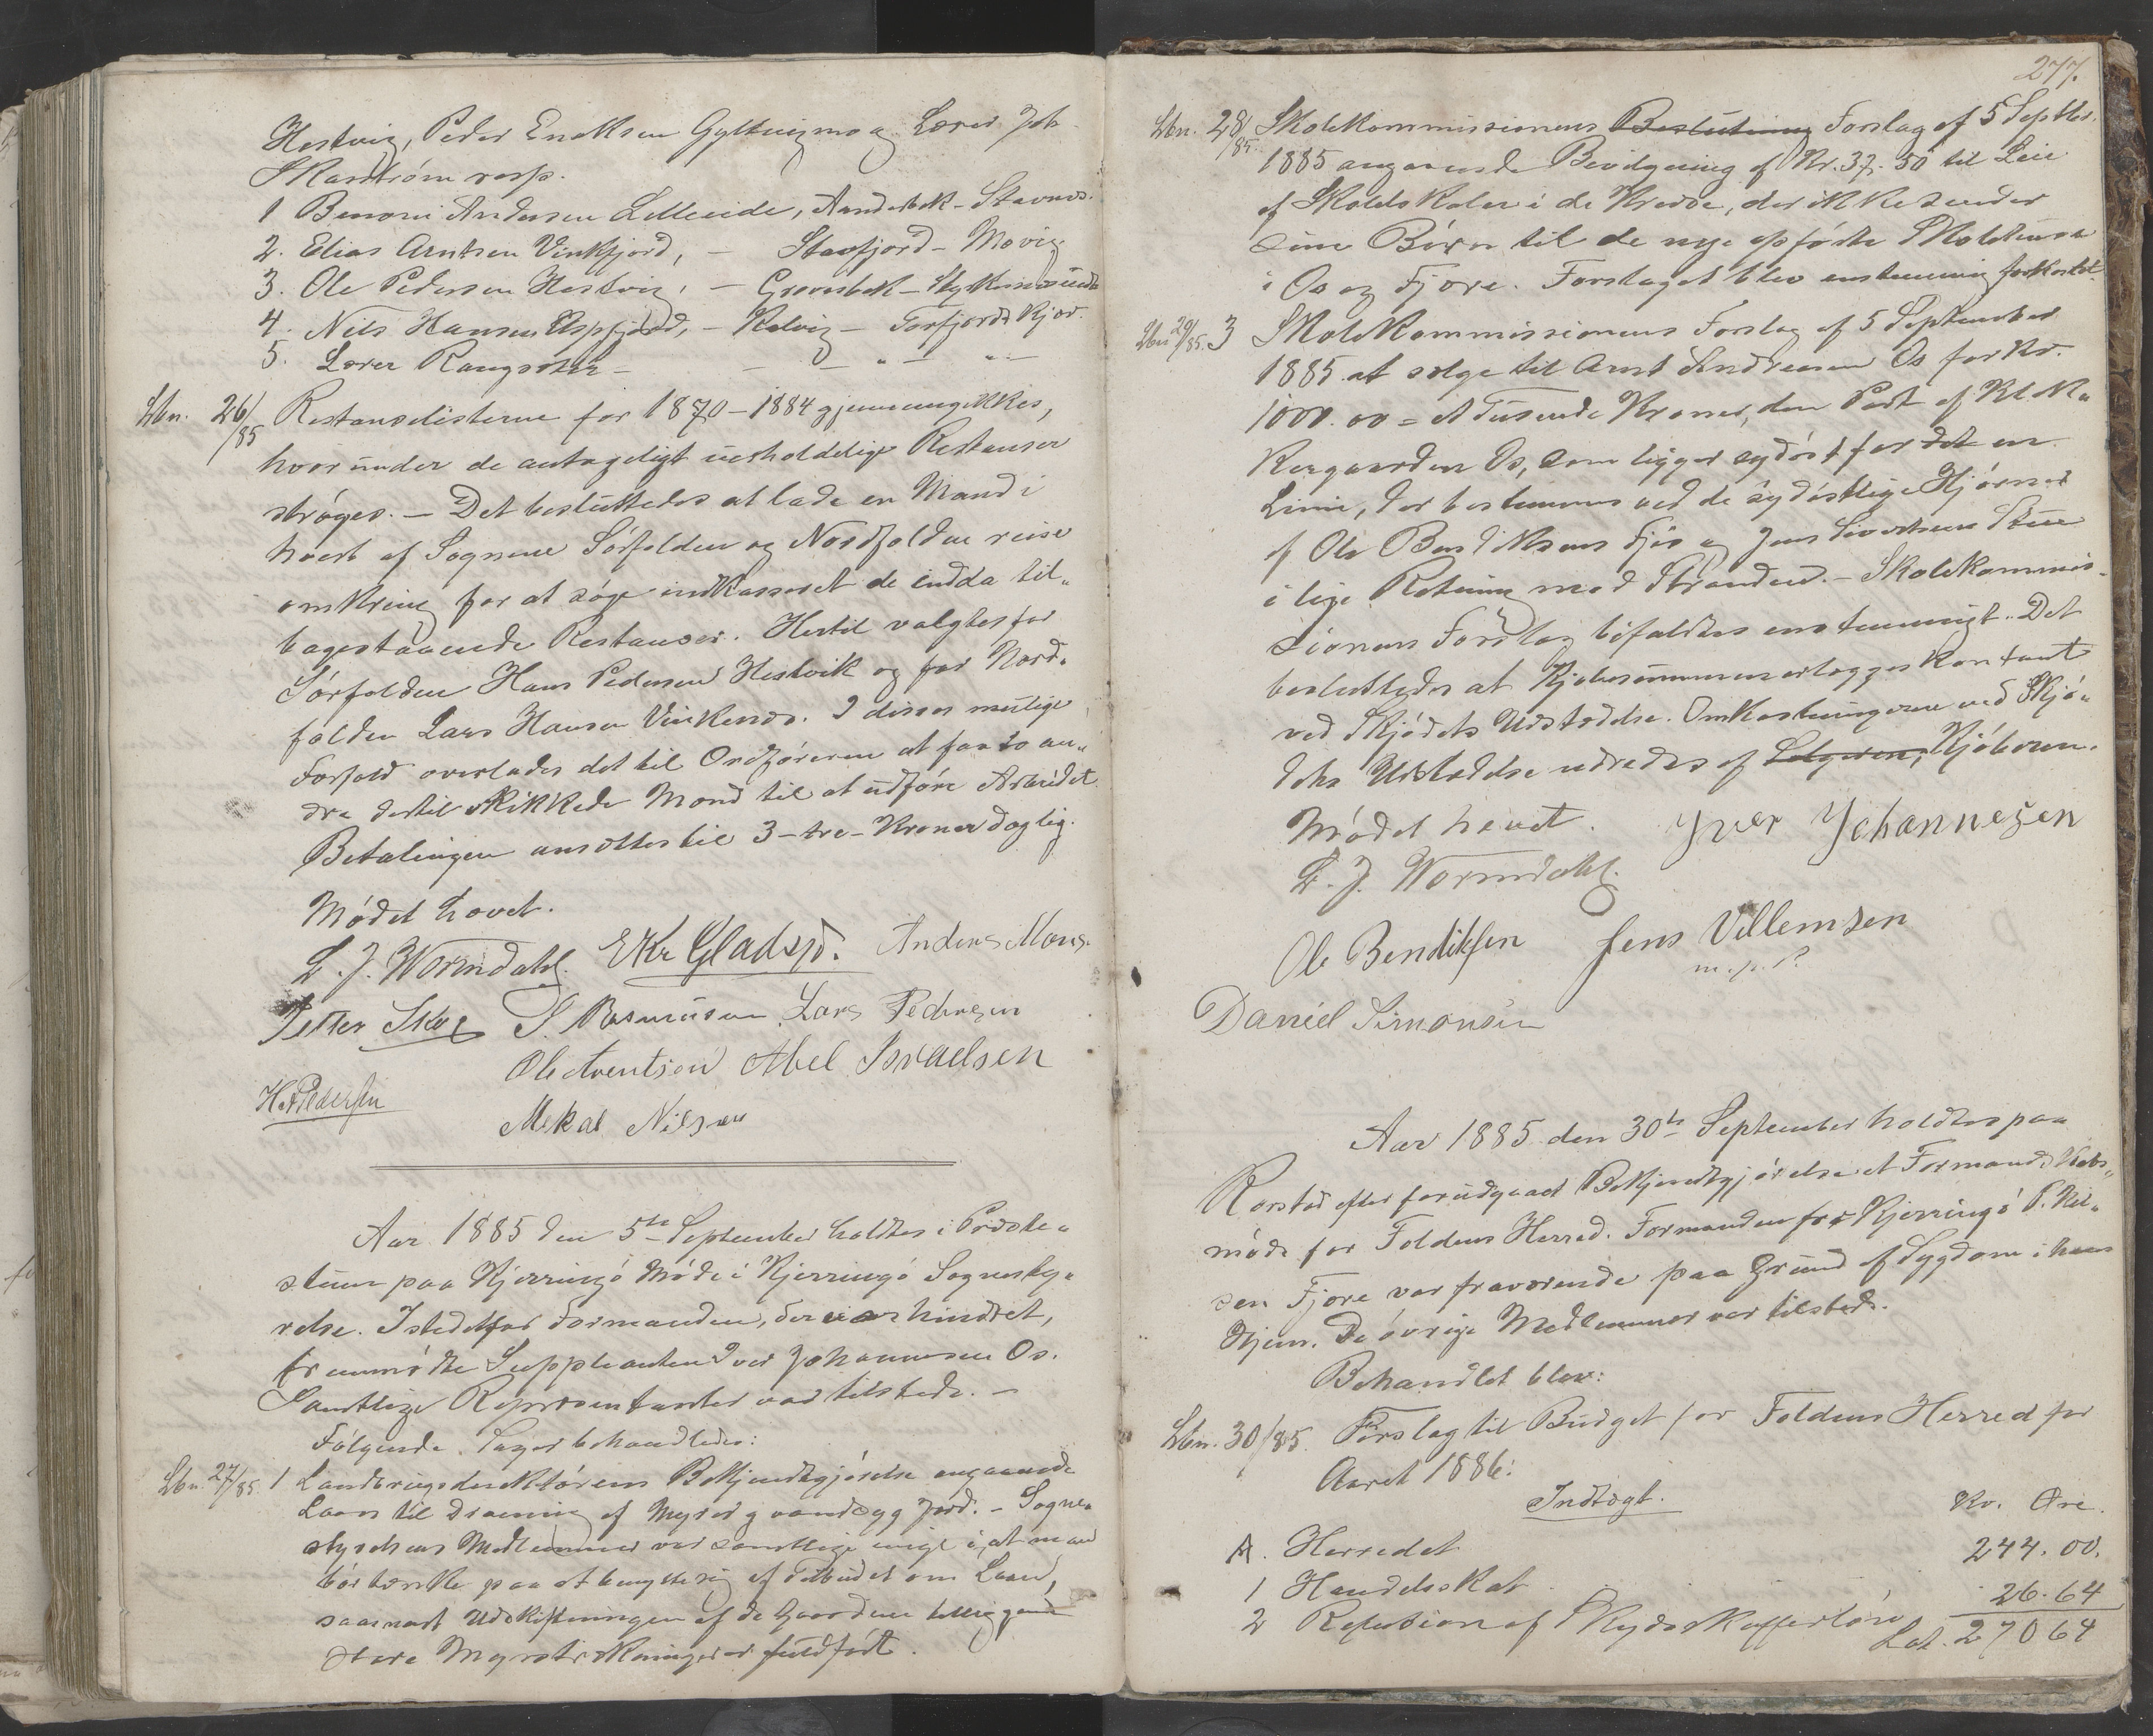 Hestvig, Peder Enoksen Gyltvigmo og Lærer Joh.
Skarstrøm resp.
1 Benoni Andersen Lilleeide, Aandsbæk - Stavnæs.
2. Elias Arntsen Vinkfjord, — Stavfjord - Movig
3. Ole Pedersen Hestvig, — Grovsbæk -
4. Nils Hansen Espfjord, — Kalvig — Torfjord Kjør.
5. Lærer — — — " — "—
Lbn. 26/85 Restanselisterne for 1870-1884 gjennemgikkes,
hvorunder de antageligt uerholdelige Restanser
strøges. — Det besluttedes at lade en Mand i
hvert af Sognene Sørfolden og Nordfolden reise
omkring for at søge indkasseret de endda til-
bagestaaende Restanser. Hertil valgtes for
Sørfolden Hans Pedersen Hestvik og for Nord-
folden Lars Hansen Vinkenes. I disses mulige
Forfald overlades det til Ordføreren at faa to an-
dre dertil skikkede Mænd til at udføre Arbeidet.
Betalingen ansættes til 3 - tre - Kroner daglig.
Mødet hævet.
L. J. Wormdahl. E Kr Gladsjø. Anders Mons.
Petter Skog S. Rasmussen Lars Pedersen
Ole Arentsen Abel Israelsen
H. A. Pedersen
Mekal Nilsen
Aar 1885 den 5te September holdtes i Præste-
stuen paa Kjerringø Møde i Kjerringø Sognesty-
relse. Istedetfor Formanden, der var hindret,
fremmødte Suppleanten Iver Johannesen Os.
Samtlige Repræsentanter var tilstede. —
Følgende Sager behandledes:
Lbn. 27/85. 1 Landbrugsdirektørens Bekjendtgjørelse angaaende
Laan til Dræning af Myr og vandsyg Jord. — Sogne-
styrelsens Medlemmer var samtlige enige i, at man
bør tænke paa at benytte sig af Tilbudet om Laan,
saasnart Udskiftningen af de Gaardene tilliggende
store Myrstrækninger er fuldført.
277.
Lbn. 28/85. Skolekommissionens Beslutning Forslag af 5 Septbr.
1885 angaaende Bevilgning af Kr. 37.50 til Leie
af Skolelokaler i de Kredse, der ikke sender
sine Børn til de nye opførte Skolehuse
i Os og Fjøre. Forslaget blev enstemmig forkastet.
Lbn 29/85. 3 Skolekommissionens Forslag af 5 September
1885 at sælge til Arnt Andreasen Os for Kr.
1000.00 = et Tusende Kroner, den Part af Klok-
kergaarden Os, som ligger sydøst for det en
Linie, der bestemmes ved de sydøstlige Hjørner
af Ole Bendiksens Fjøs og Jens Sivertsens Stue
i lige Retning mod Stranden. — Skolekommis-
sionens Forslag bifaldtes enstemmigt. Det
besluttedes at Kjøbesummen erlægges kontant
ved Skjødets Udstædelse. Omkostningerne ved Skjø-
dets Udstædelse udredes af Sælgeren, Kjøberen.
Mødet hævet. Iver Johannesen
L. J. Wormdahl.
Ole Bendiksen Jens Villemsen
m. p. P.
Daniel Simonsen
Aar 1885 den 30te September holdtes paa
Rørstad efter forudgaaet Bekjendtgjørelse et Formandskabs-
møde for Foldens Herred. Formanden for Kjerringø P. Nil-
sen Fjøre var fraværende paa Grund af Sygdom i hans
Hjem. De øvrige Medlemmer var tilstede.
Behandlet blev:
Lbn. 30/85. Forslag til Budget for Foldens Herred for
Aaret 1886:
Indtægt. Kr. Øre.
A. Herredet
1 Handelsskat 244.00.
2 Refusion af Skydsskafferløn 26.64
Lat. 270 64